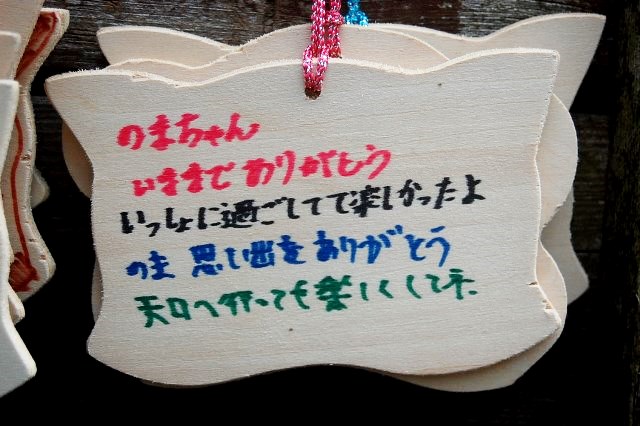 のまちゃん
いままでありがとう
いっしょに過ごしてて楽しかったよ
のま 思い出をありがとう
天口へ行っても楽しくしてネ